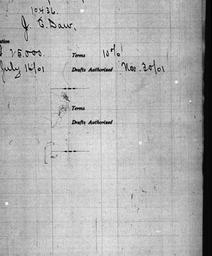 10436.
J. C. Daw,
$25.000 Terms 10%
July 16/01 Drafts Authorized Nov. 30/01
Terms
Drafts Authorized